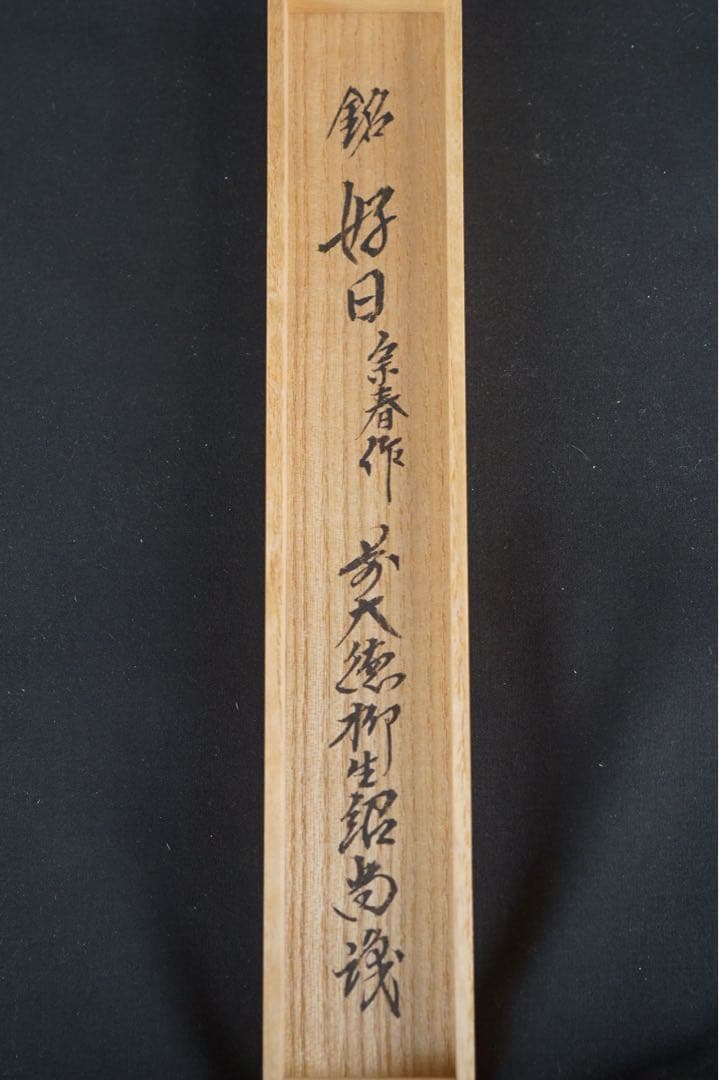 銘 好日 宗春作 前大徳柳生紹尚識